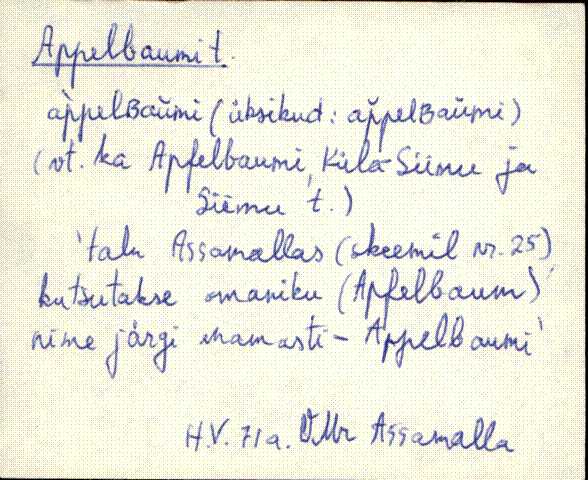 Appelbaumi t.
àppelBaŭmi (üksikud: aĭppelBaŭmi)
(vt. ka Apfelbaumi, Küla-Siimu ja
Siimu t.)
'talu Assamallas (skeemil nr. 25)
kutsutakse omaniku (Apfelbaum)
nime järgi enamasti - Appelbaumi'
H.V. 71a. VMr Assamalla